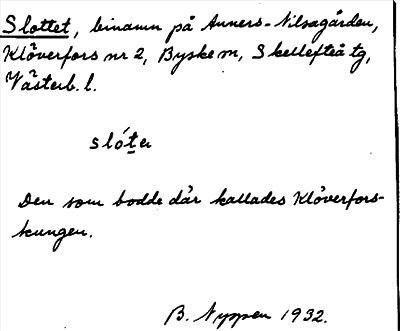 Slottet, binamn på Anners-Nilsagården,
Klöverfors nr 2, Byske sn, Skellefteå tg,
Västerb. l.
slóter
Den som bodde där kallades Klöverfors-
kungen.
B. Nyppen 1932.